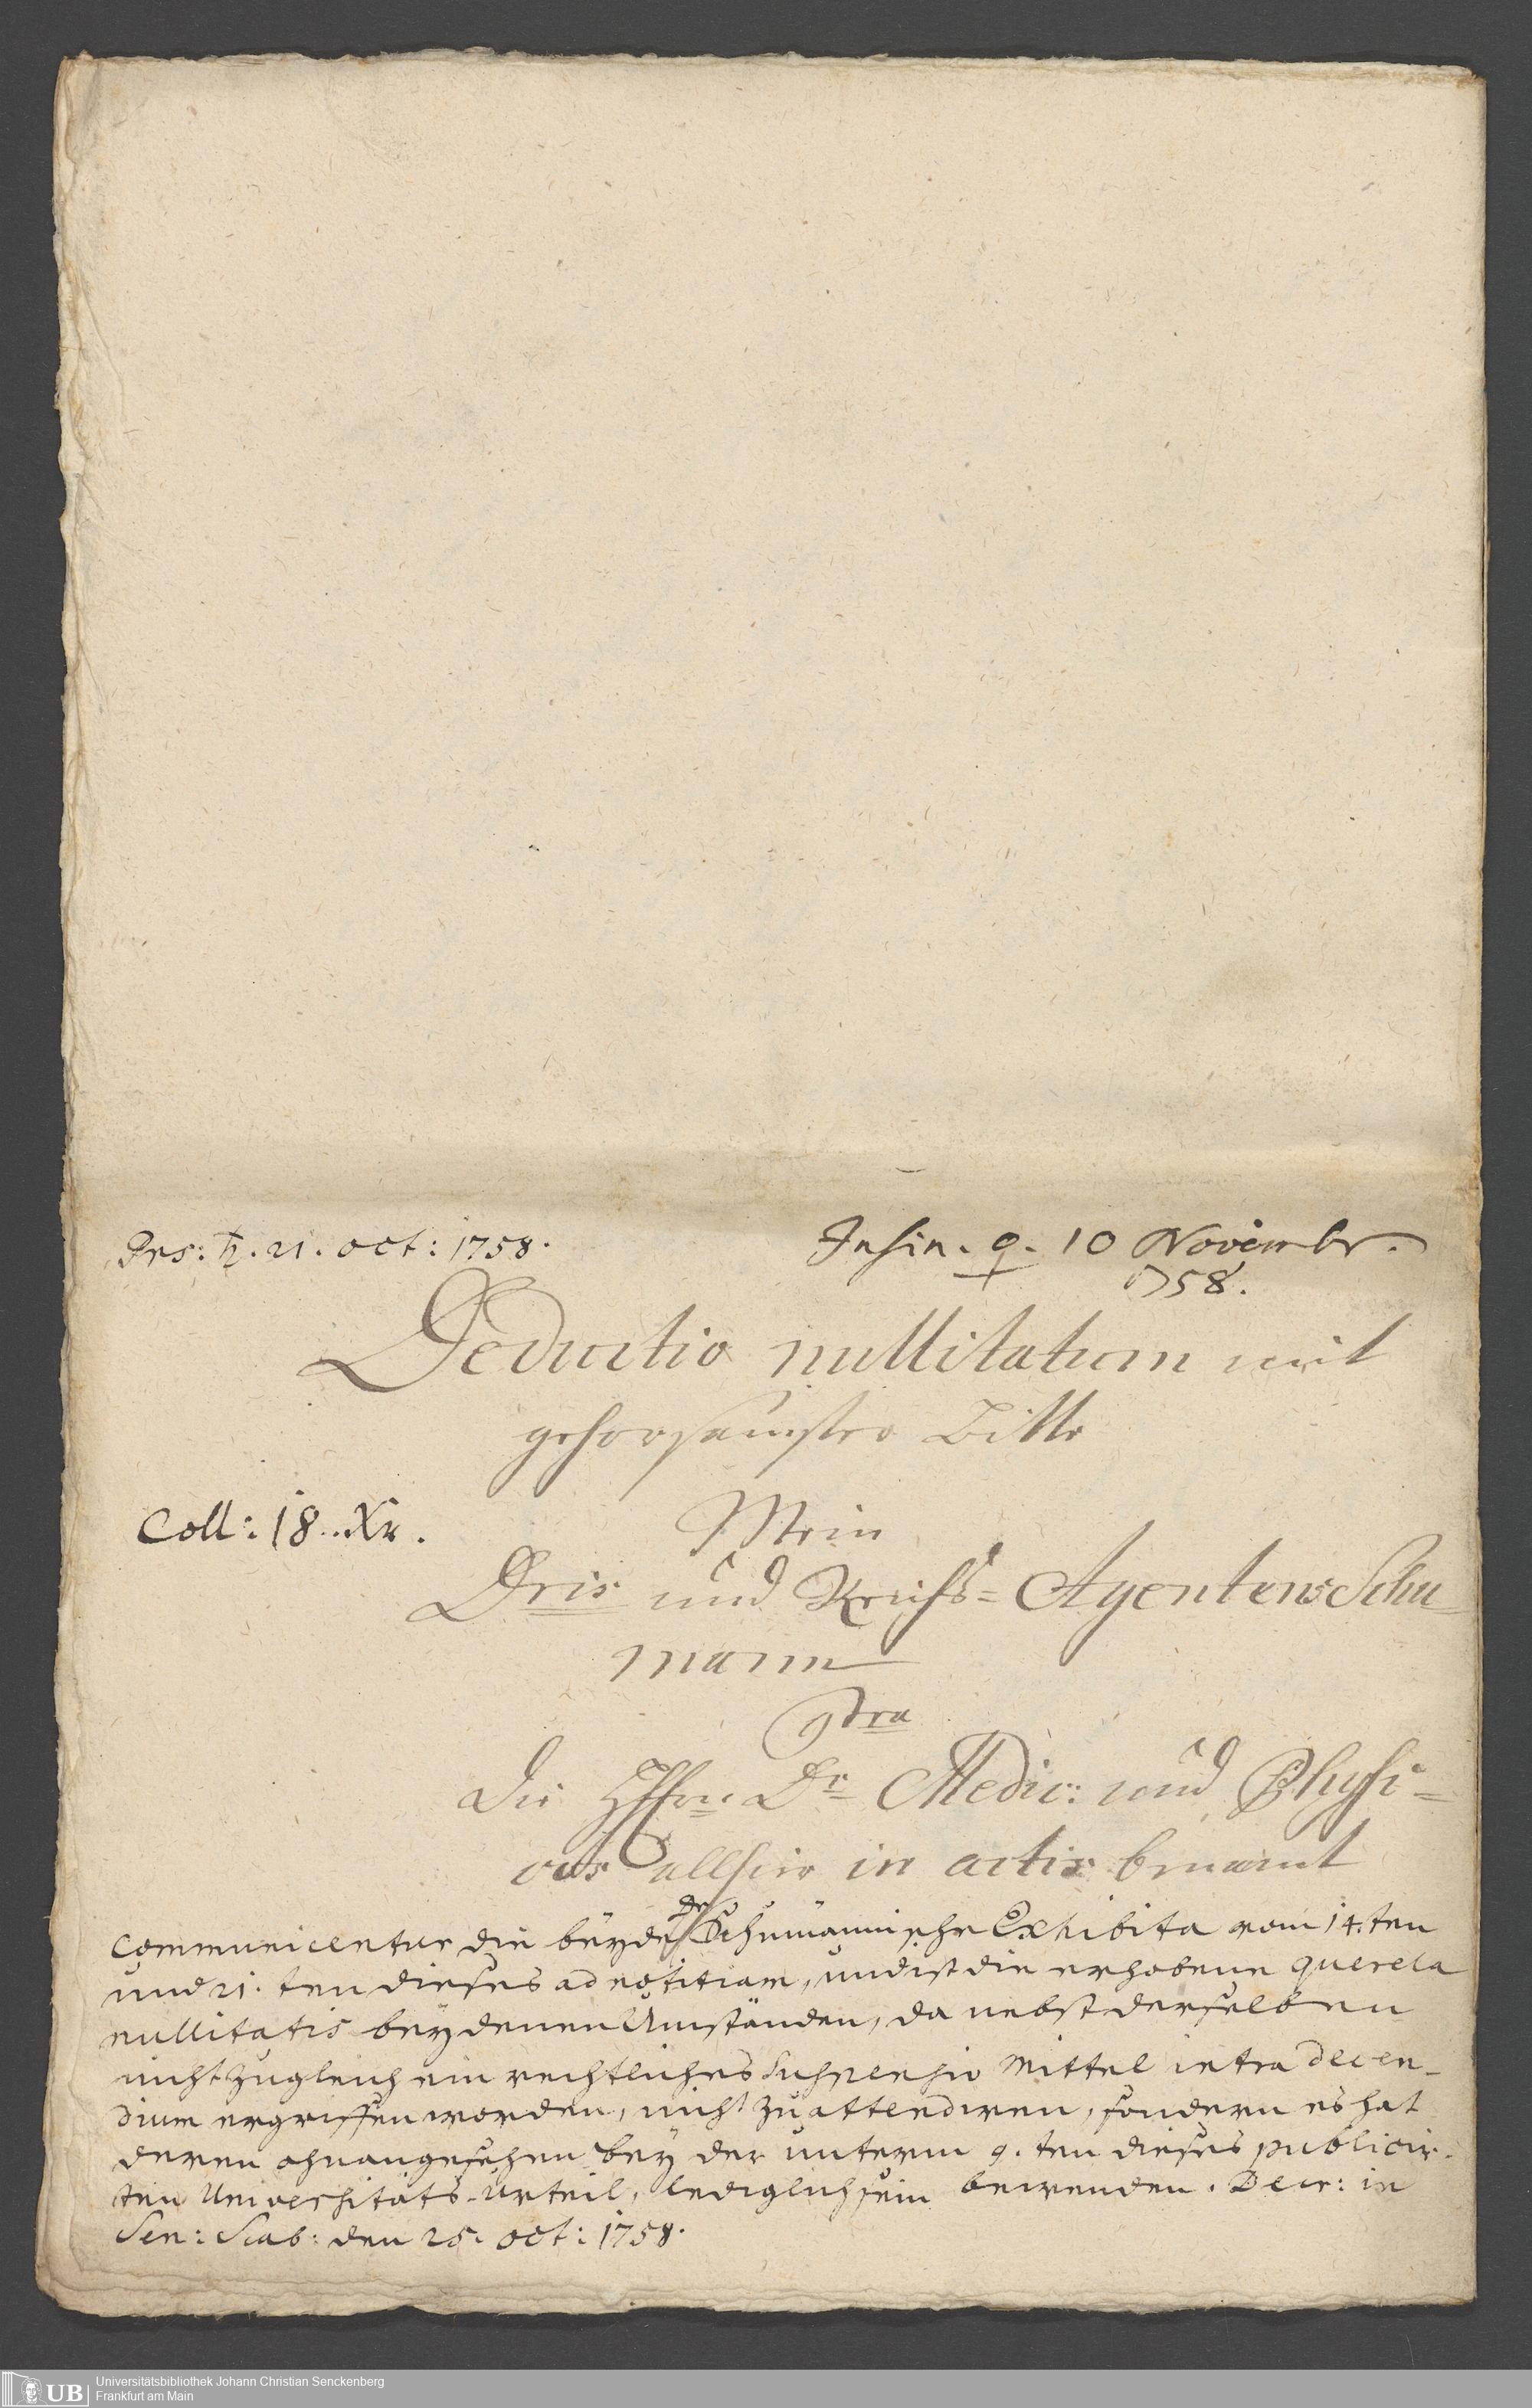 Prs: ♄. 21. oct: 1758.
Insin. ♀. 10 Novembr.
1758.
Deductio nullitatum mit
gehorsamster Bitte
Coll: 18..Xr.
Mein
Dris und Kreiß= Agentens Schu
mann
Ctra
die HHrn Dr Medic: und Physi=
cos allhier in actis benamt
Communicentur die beyde Dr Schumannische Exhibita vom 14.ten
und 21.ten dieses ad notitiam, und ist die erhobene querela
nullitatis bey denen Umständen, da nebst derselben
nicht zugleich ein rechtliches Suspensiv Mittel intra decen-
dium ergriffen worden, nicht zu attendiren, sondern es hat
deren ohnangesehen bey der unterm 9.ten dieses publicir-
ten Universitäts-Urteil, lediglich sein bewenden. Decr: in
Sen: Scab: den 25. oct: 1758.
UB
Universitätsbibliothek Johann Christian Senckenberg
Frankfurt am Main